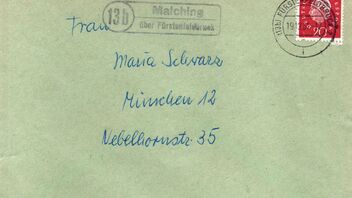 13b
Malching
über Fürstenfeldbruck
Frau
Maria Schwarz
München 12
Nebelhornstr. 35
20